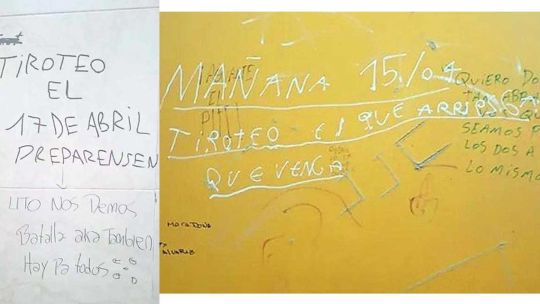 TIROTEO
EL
17 DE ABRIL
PREPARENSEN
LITO NOS Demos
Batalla aka Tambien
Hay Pa todos
MAÑANA 15/04
TIROTEO el QUE ARRIESGA
QUE VENGA
QUIERO DO
SEAMOS
LOS DOS A
LO MISMO
MARADONA
ALVARES